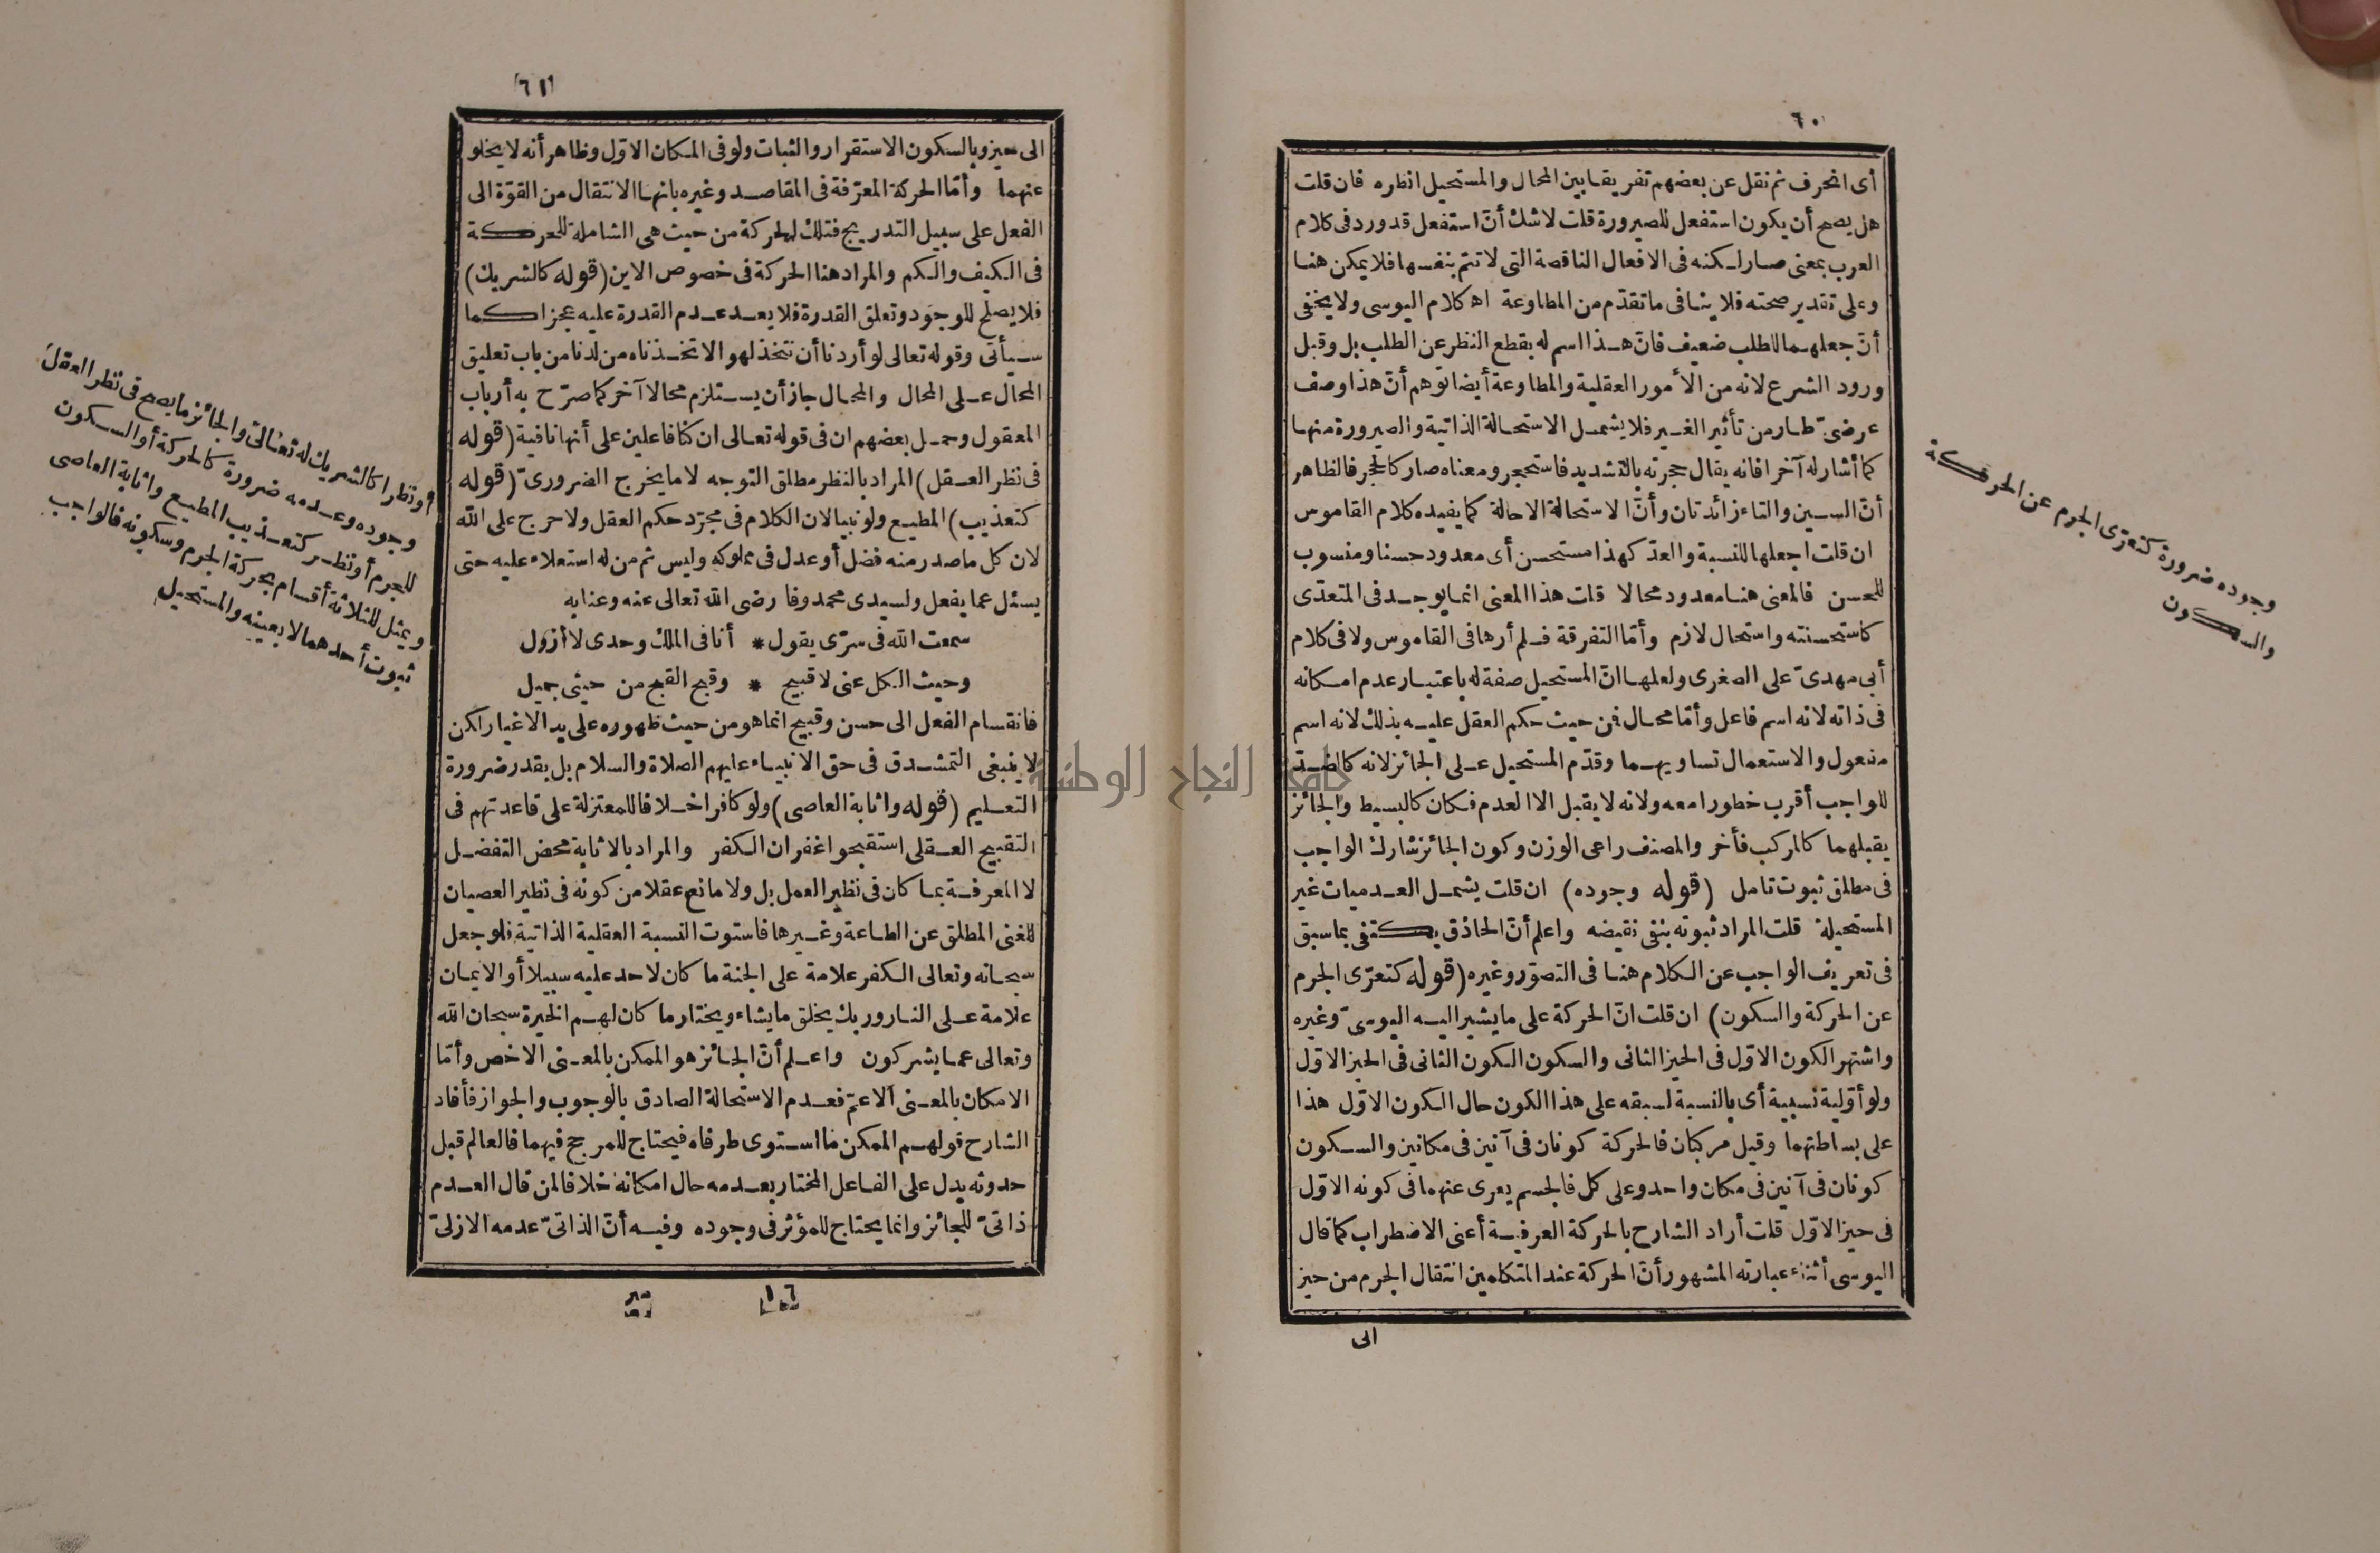 ٦٠
أى انحرف ثم نقل عن بعضهم تفريقا بين المحال والمستحيل انظره فان قلت
هل يصح أن يكون استفعل للصيرورة قلت لا شك أنّ استفعل قد ورد فى كلام
العرب بمعنى صار لكنه فى الافعال الناقصة التى لا تتم بنفسها فلا يمكن هنا
وعلى تقدير صحته فلا ينافى ما تقدّم من المطاوعة اه كلام اليوسى ولا يخفى
أنّ جعلهما للطلب ضعيف فانّ هذا اسم له بقطع النظر عن الطلب بل وقبل
ورود الشرع لانه من الأمور العقلية والمطاوعة أيضا توهم أنّ هذا وصف
عرضىّ طار من تأثير الغير فلا يشمل الاستحالة الذاتية والصيرورة منها
كما أشار له آخرا فانه يقال حجرته بالتشديد فاستحجر ومعناه صار كالحجر فالظاهر
أنّ السين والتاء زائدتان وأنّ الاستحالة الاحالة كما يفيده كلام القاموس
ان قلت اجعلها للنسبة والعدّ كهذا مستحسن أى معدود حسنا ومنسوب
للحسن فالمعنى هنا معدود محالا قلت هذا المعنى انما يوجد فى المتعدّى
كاستحسنته واستحال لازم وأمّا التفرقة فلم أرها فى القاموس ولا فى كلام
أبى مهدىّ على الصغرى ولعلها انّ المستحيل صفة له باعتبار عدم امكانه
فى ذاته لانه اسم فاعل وأمّا محال فمن حيث حكم العقل عليه بذلك لانه اسم
مفعول والاستعمال تساويهما وقدّم المستحيل على الجائز لانه كالضدّ
للواجب أقرب خطورا معه ولانه لا يقبل الا العدم فكان كالبسيط والجائز
يقبلهما كالمركب فأخر والمصنف راعى الوزن وكون الجائز شارك الواجب
فى مطلق ثبوت تامل (قوله وجوده) ان قلت يشمل العدميات غير
المستحيلة قلت المراد ثبوته بنفى نقيضه واعلم أنّ الحاذق يكتفى بما سبق
فى تعريف الواجب عن الكلام هنا فى التصوّر وغيره (قوله كتعرّى الجرم
عن الحركة والسكون) ان قلت انّ الحركة على ما يشير اليه اليوسىّ وغيره
واشتهر الكون الاوّل فى الحيز الثانى والسكون الكون الثانى فى الحيز الاوّل
ولو أوّلية نسبية أى بالنسبة لسبقه على هذا الكون حال الكون الاوّل هذا
على بساطتهما وقيل مركبان فالحركة كونان فى آنين فى مكانين والسكون
كونان فى آنين فى مكان واحد وعلى كل فالجسم يعرى عنهما فى كونه الاوّل
فى حيز الاوّل قلت أراد الشارح بالحركة العرفية أعنى الاضطراب كما قال
اليوسى أثناء عبارته المشهور أنّ الحركة عند المتكلمين انتقال الجرم من حيز
الى
وجوده ضرورة كتعرّى الجرم عن الحركة
والسكون
٦١
الى حيز وبالسكون الاستقرار والثبات ولو فى المكان الاوّل وظاهر أنه لا يخلو
عنهما وأمّا الحركة المعرّفة فى المقاصد وغيره بانها الانتقال من القوّة الى
الفعل على سبيل التدريج فتلك الحركة من حيث هى الشاملة للحركة
فى الكيف والكم والمراد هنا الحركة فى خصوص الاين (قوله كالشريك)
فلا يصلح للوجود وتعلق القدرة فلا يعد عدم القدرة عليه عجزا كما
سيأتى وقوله تعالى لو أردنا أن نتخذ لهوا لاتخذناه من لدنا من باب تعليق
المحال على المحال والمحال جاز أن يستلزم محالا آخر كما صرّح به أرباب
المعقول وحمل بعضهم ان فى قوله تعالى ان كنا فاعلين على أنها نافية (قوله
فى نظر العقل) المراد بالنظر مطلق التوجه لا ما يخرج الضرورىّ (قوله
كتعذيب) المطيع ولو نبيا لان الكلام فى مجرّد حكم العقل ولا حرج على الله
لان كل ما صدر منه فضل أو عدل فى مملوكه وليس ثم من له استعلاء عليه حتى
يسئل عما يفعل ولسيدى محمد وفا رضى الله تعالى عنه وعنا به
سمعت الله فى سرّى يقول * أنا فى الملك وحدى لا أزول
وحيث الكل عنى لا قبيح * وقبح القبح من حيثى جميل
فانقسام الفعل الى حسن وقبيح انما هو من حيث ظهوره على يد الاغيار لكن
لا ينبغى التمشدق فى حق الانبياء عليهم الصلاة والسلام بل بقدر ضرورة
التعليم (قوله واثابة العاصى) ولو كافرا خلافا للمعتزلة على قاعدتهم فى
التقبيح العقلى استقبحوا غفران الكفر والمراد بالاثابة محض التفضل
لا المعرفة بما كان فى نظير العمل بل ولا مانع عقلا من كونه فى نظير العصيان
للغنى المطلق عن الطاعة وغيرها فاستوت النسبة العقلية الذاتية فلو جعل
سبحانه وتعالى الكفر علامة على الجنة ما كان لاحد عليه سبيلا أو الايمان
علامة على النار وربك يخلق ما يشاء ويختار ما كان لهم الخيرة سبحان الله
وتعالى عما يشركون واعلم أنّ الجائز هو الممكن بالمعنى الاخص وأمّا
الامكان بالمعنى الاعمّ فعدم الاستحالة الصادق بالوجوب والجواز فأفاد
الشارح قولهم الممكن ما استوى طرفاه فيحتاج للمرجح فيهما فالعالم قبل
حدوثه يدل على الفاعل المختار بعدمه حال امكانه خلافا لمن قال العدم
ذاتىّ للجائز وانما يحتاج للمؤثر فى وجوده وفيه أنّ الذاتىّ عدمه الازلىّ
١٦
مير
أو نظرا كالشريك له تعالى والجائز ما يصح فى نظر العقل
وجوده وعدمه ضرورة كالحركة أو السكون
للجرم أو نظر كتعذيب المطيع واثابة العاصى
ويمثل للثلاثة أقسام بحركة الجرم وسكونه فالواجب
ثبوت أحدهما لا بعينه والمستحيل
جامعة النجاح الوطنية